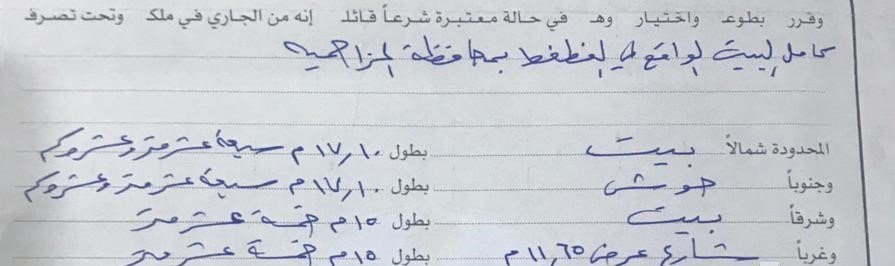 وقرر بطوع واختيار وهـ في حالة معتبرة شرعاً قائلا إنه من الجاري في ملك وتحت تصرف
كامل البيت الواقع في الغطغط بمحافظة المزاحمية
المحدودة شمالاً بيت بطول ١٧٫١٠ م سبعة عشر متر وعشرة سم
وجنوباً حوش بطول ١٧٫١٠ م سبعة عشر متر وعشرة سم
وشرقاً بيت بطول ١٥ م خمسة عشر متر
وغرباً شارع عرض ١١٫٦٥ م بطول ١٥ م خمسة عشر متر